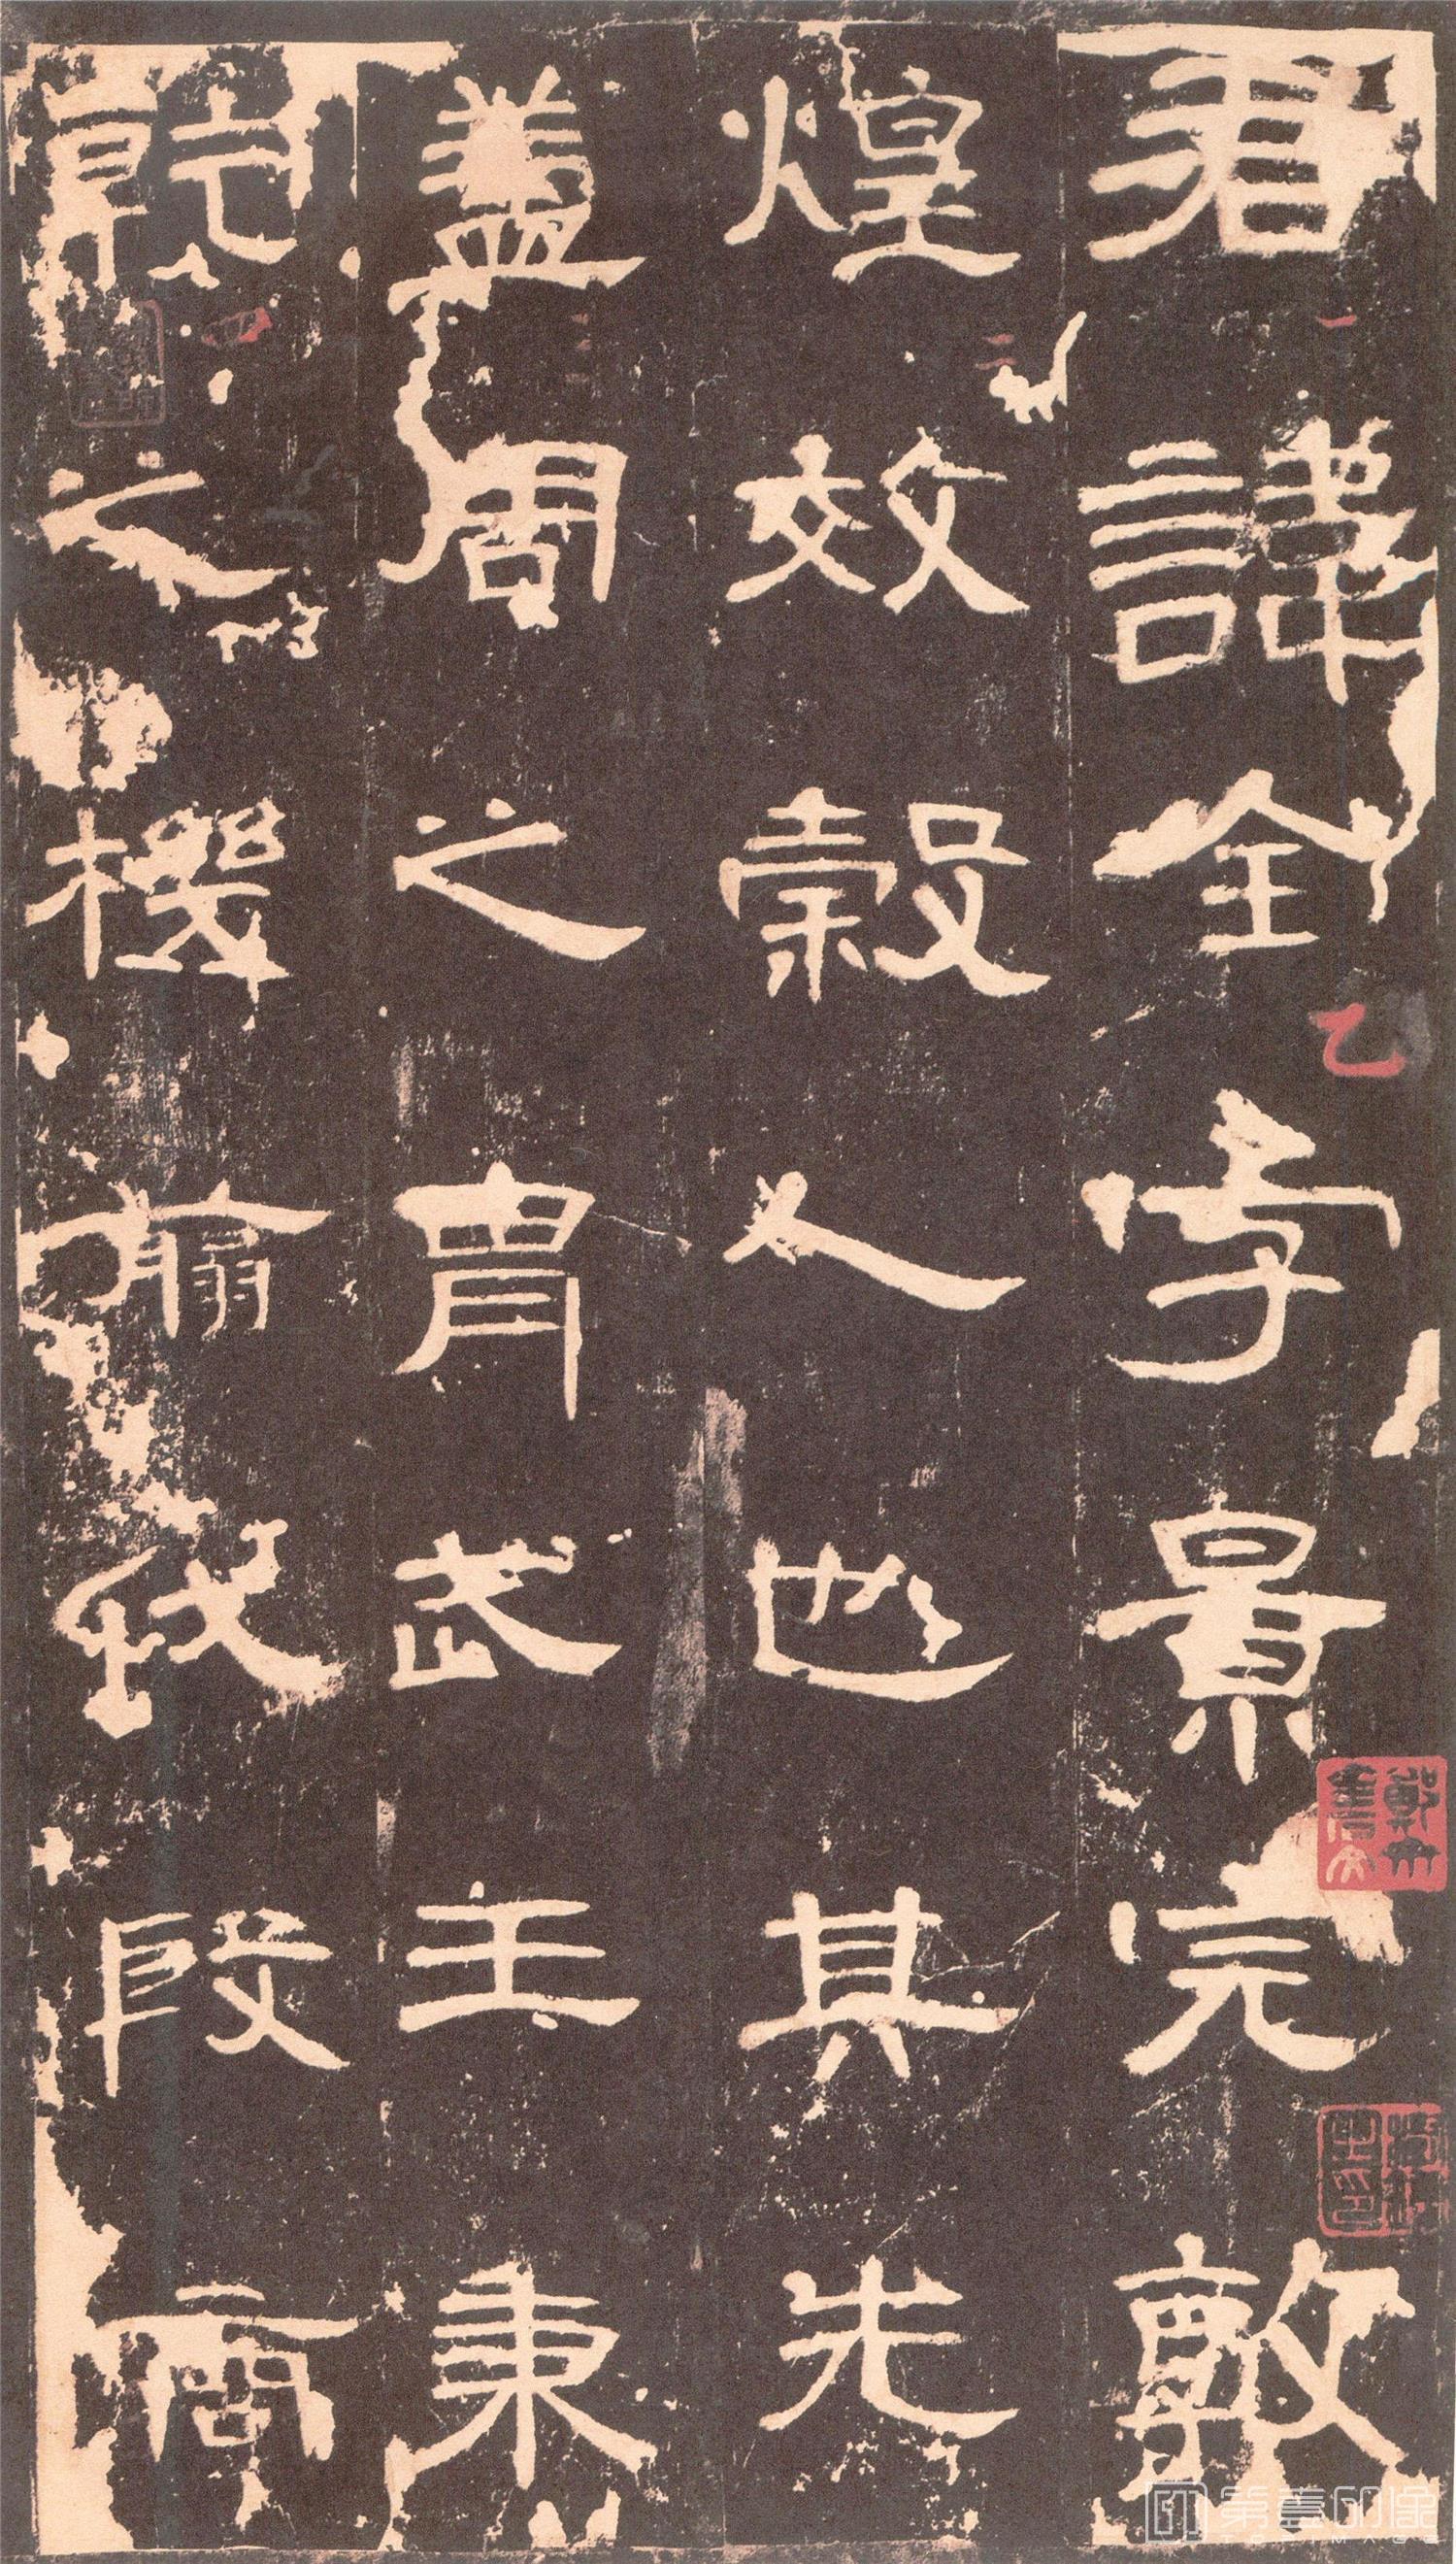 君諱全字景完敦
煌效穀人也其先
蓋周之胄武王秉
乾之機翦伐殷商
乙
第壹印像
TOPIMAGE